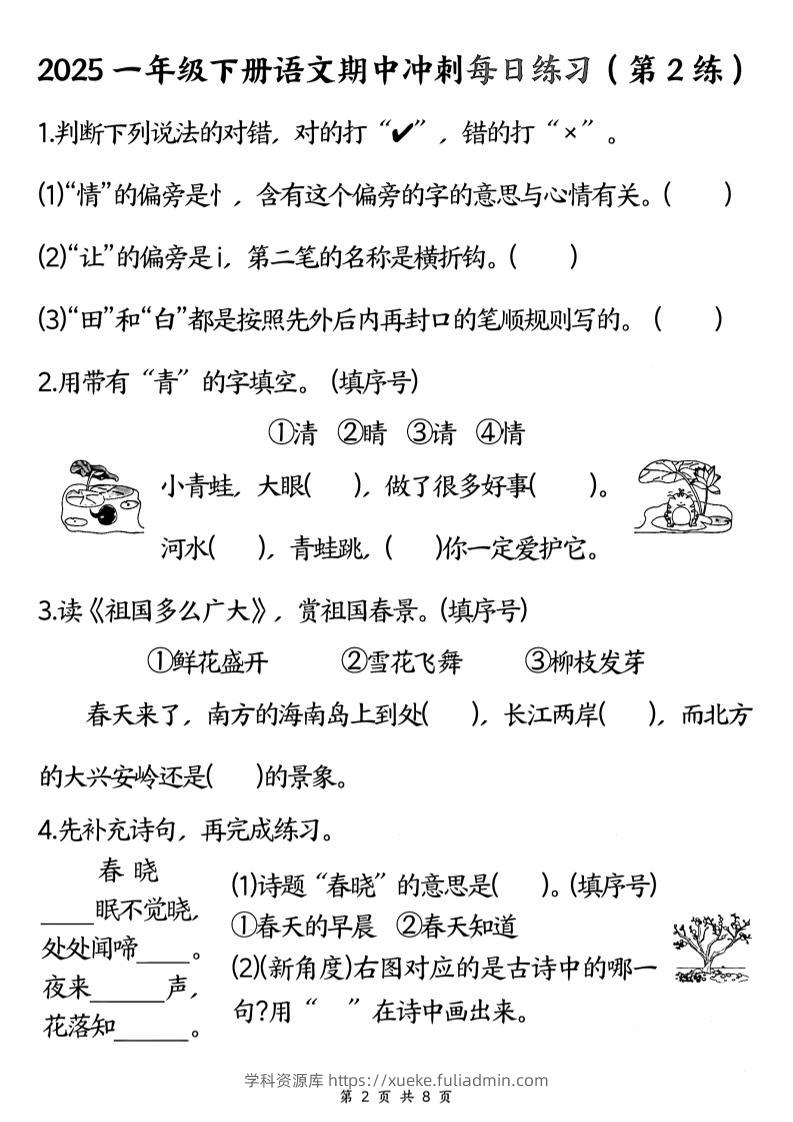 2025 一年级下册语文期中冲刺每日练习（第 2 练）
1.判断下列说法的对错，对的打“✔”，错的打“×”。
(1)“情”的偏旁是忄，含有这个偏旁的字的意思与心情有关。(　　)
(2)“让”的偏旁是 i，第二笔的名称是横折钩。(　　)
(3)“田”和“白”都是按照先外后内再封口的笔顺规则写的。(　　)
2.用带有“青”的字填空。(填序号)
①清 ②晴 ③请 ④情
小青蛙，大眼(　　)，做了很多好事(　　)。
河水(　　)，青蛙跳，(　　)你一定爱护它。
3.读《祖国多么广大》，赏祖国春景。(填序号)
①鲜花盛开 ②雪花飞舞 ③柳枝发芽
春天来了，南方的海南岛上到处(　　)，长江两岸(　　)，而北方
的大兴安岭还是(　　)的景象。
4.先补充诗句，再完成练习。
春 晓
____眠不觉晓，
处处闻啼____。
夜来______声，
花落知______。
(1)诗题“春晓”的意思是(　　)。(填序号)
①春天的早晨 ②春天知道
(2)(新角度)右图对应的是古诗中的哪一
句?用“　”在诗中画出来。
学科资源库 https://xueke.fuliadmin.com
第 2 页 共 8 页